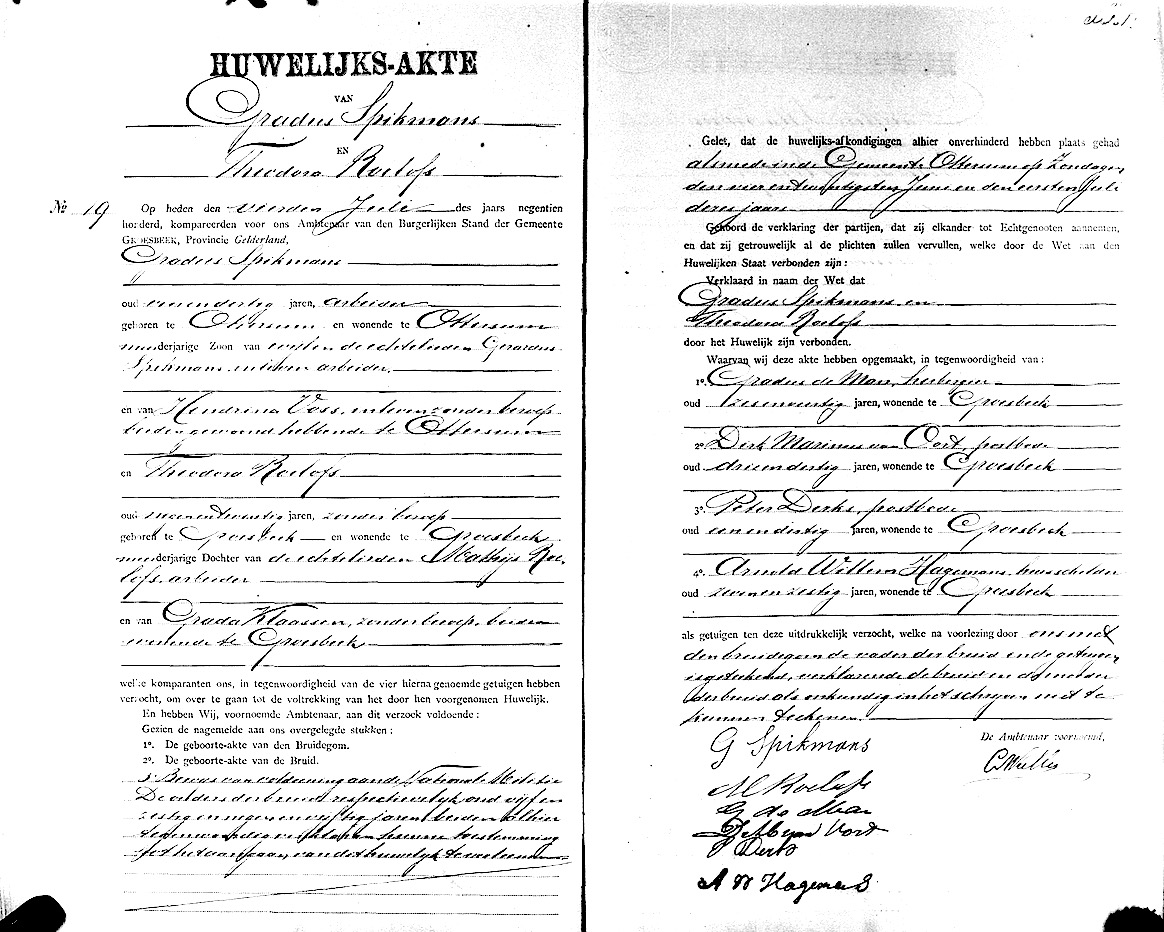 HUWELIJKS-AKTE
VAN
Gradus Spikmans
EN
Theodora Roelofs
№ 19
Op heden den vierden Juli des jaars negentien
honderd, kompareerden voor ons Ambtenaar van den Burgerlijken Stand der Gemeente
GROESBEEK, Provincie Gelderland,
Gradus Spikmans
oud eenendertig jaren, arbeider
geboren te Ottersum en wonende te Ottersum
meerderjarige Zoon van wijlen de echtelieden Gerardus
Spikmans in leven arbeider
en van Hendrina Voss, in leven zonder beroep
beiden gewoond hebbende te Ottersum
en Theodora Roelofs
oud jaren, zonder beroep
geboren te Groesbeek en wonende te Groesbeek
meerderjarige Dochter van de echtelieden Mathijs Roe-
lofs arbeider
en van Grada Klaassen, zonder beroep, beiden
wonende te Groesbeek
welke komparanten ons, in tegenwoordigheid van de vier hierna genoemde getuigen hebben
verzocht, om over te gaan tot de voltrekking van het door hen voorgenomen Huwelijk.
En hebben Wij, voornoemde Ambtenaar, aan dit verzoek voldoende:
Gezien de nagemelde aan ons overgelegde stukken:
1°. De geboorte-akte van den Bruidegom.
2°. De geboorte-akte van de Bruid.
3° Bewijs van voldoening aan de Nationale Militie
De ouders der bruid respectievelijk oud vijf en
zestig en negen en vijftig jaren beiden alhier
tegenwoordig verklaren hunne toestemming
tot het aangaan van dit huwelijk te verleenen
Gelet, dat de huwelijks-afkondigingen alhier onverhinderd hebben plaats gehad
alsmede in de Gemeente Ottersum op Zondagen
den vier en twintigsten Juni en den eersten Juli
dezes jaars
Gehoord de verklaring der partijen, dat zij elkander tot Echtgenooten aannemen,
en dat zij getrouwelijk al de plichten zullen vervullen, welke door de Wet aan den
Huwelijken Staat verbonden zijn:
Verklaard in naam der Wet dat
Gradus Spikmans en
Theodora Roelofs
door het Huwelijk zijn verbonden.
Waarvan wij deze akte hebben opgemaakt, in tegenwoordigheid van:
1°. Gradus de Man, herbergier
oud jaren, wonende te Groesbeek
2°. Dirk Marinus van Oort, postbode
oud drieendertig jaren, wonende te Groesbeek
3°. Peter Derks, postbode
oud eenendertig jaren, wonende te Groesbeek
4°. Arnold Willem Hagemans, huisschilder
oud zevenenzestig jaren, wonende te Groesbeek
als getuigen ten deze uitdrukkelijk verzocht, welke na voorlezing door ons met
den bruidegom de vader der bruid en de getuigen
is geteekend, verklarende de bruid en de moeder
der bruid als onkundig in het schrijven niet te
kunnen teekenen
De Ambtenaar voornoemd,
G Spikmans
M Roelofs
G de Man
D M van Oort
P Derks
A W Hagemans